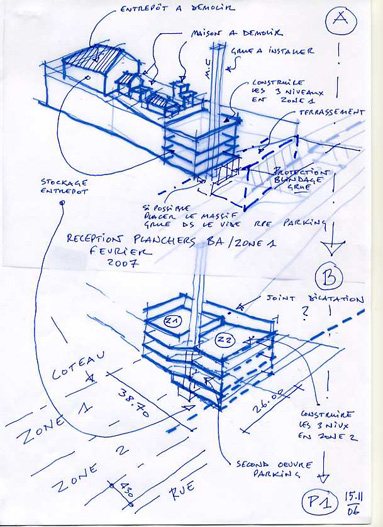 ENTREPÔT A DEMOLIR
MAISON A DEMOLIR
A
GRUE A INSTALLER
CONSTRUIRE
LES 3 NIVEAUX
EN ZONE 1
TERRASSEMENT
PROTECTION
BLINDAGE
GRUE
STOCKAGE
ENTREPOT
SI POSSIBLE
PLACER LE MASSIF
GRUE DS LE VIDE RPE PARKING
RECEPTION PLANCHERS BA/ZONE 1
FEVRIER
2007
B
JOINT DILATATION
?
Z1
Z2
COTEAU
38.70
ZONE 1
ZONE 2
26.00
CONSTRUIRE
LES 3 NIVX
EN ZONE 2
SECOND OEUVRE
PARKING
RUE
P1
15.11
06